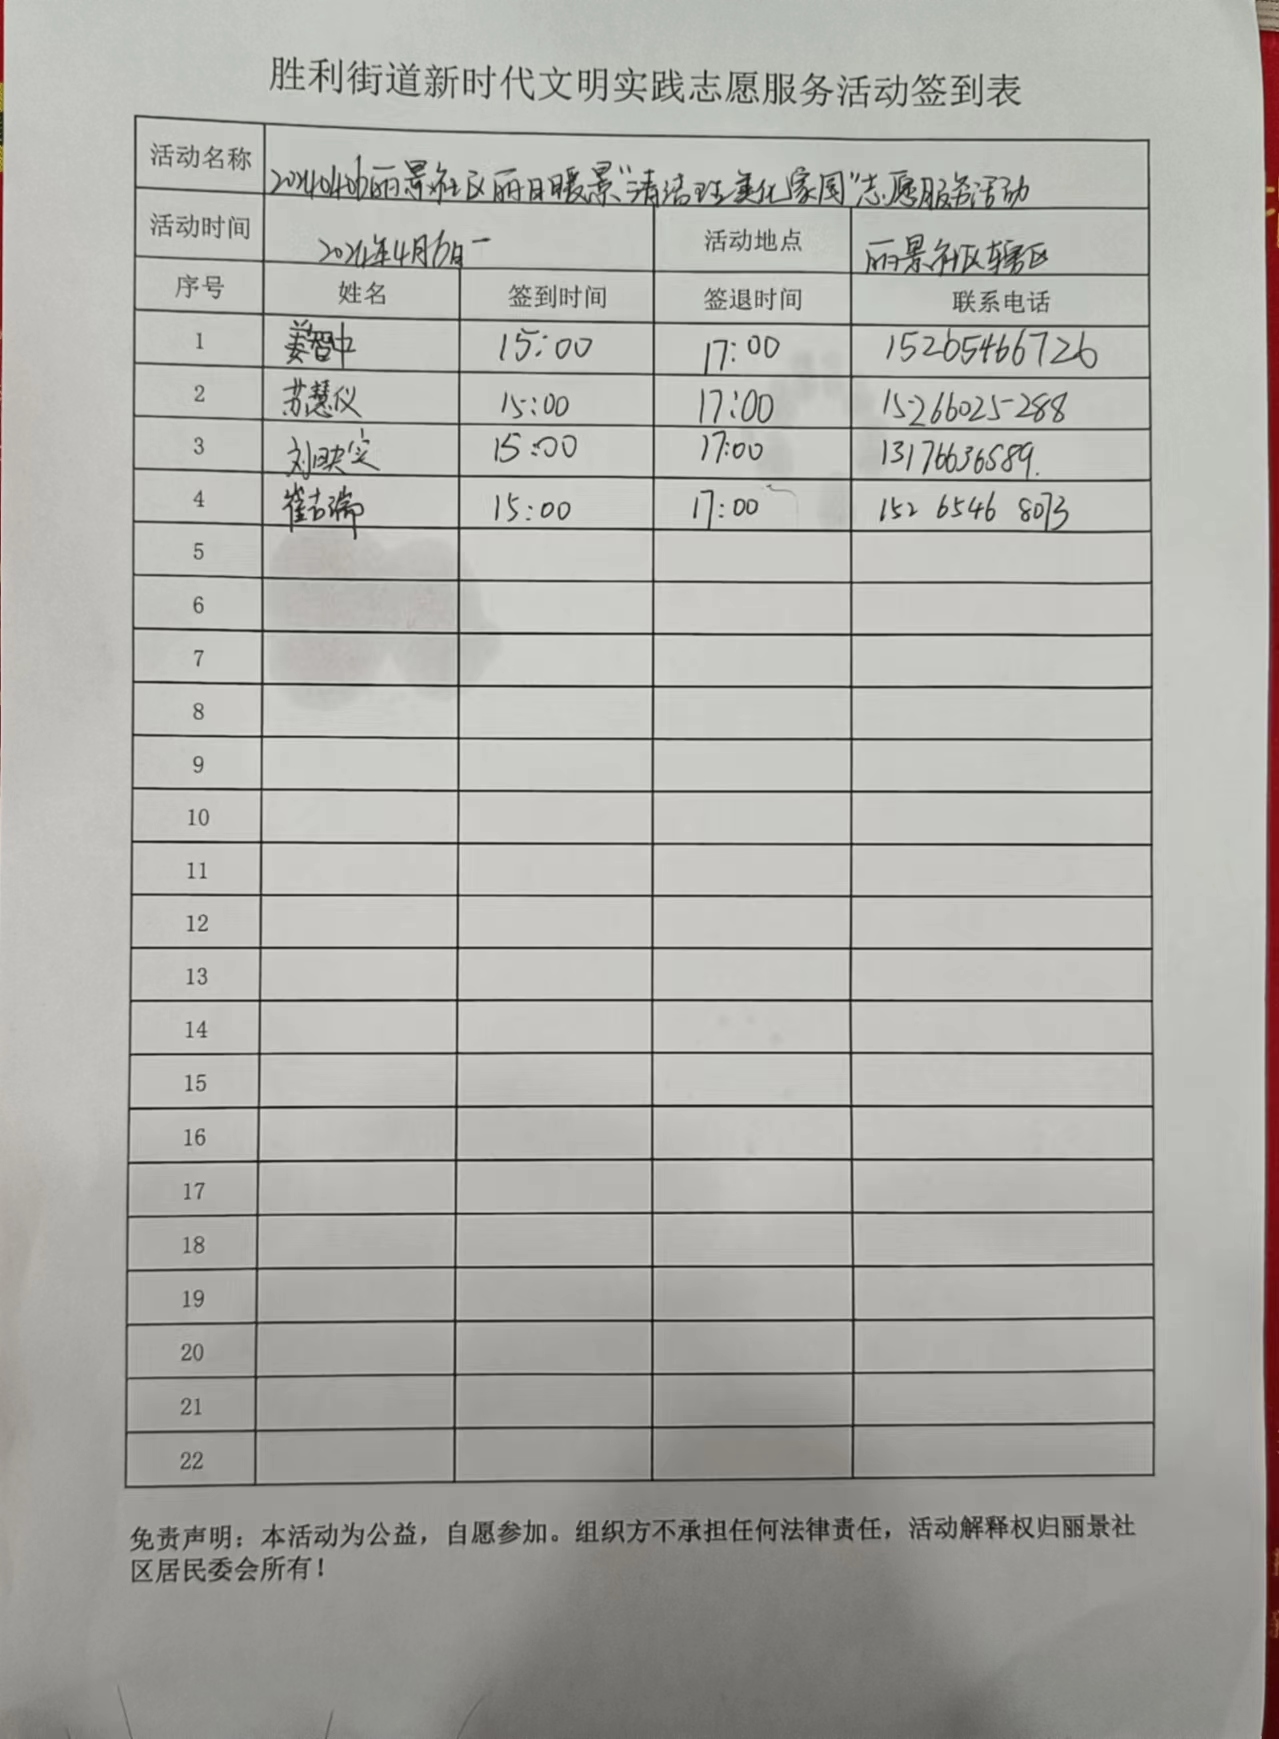 胜利街道新时代文明实践志愿服务活动签到表
活动名称 20240406丽景社区丽日暖景"清洁环美化家园"志愿服务活动
活动时间 2024年4月6日 活动地点 丽景社区辖区
序号 姓名 签到时间 签退时间 联系电话
1 姜智中 15:00 17:00 15265466726
2 苏慧仪 15:00 17:00 15266025288
3 刘映实 15:00 17:00 13176636589.
4 崔吉瑞 15:00 17:00 152 6546 8073
5
6
7
8
9
10
11
12
13
14
15
16
17
18
19
20
21
22
免责声明：本活动为公益，自愿参加。组织方不承担任何法律责任，活动解释权归丽景社
区居民委会所有！